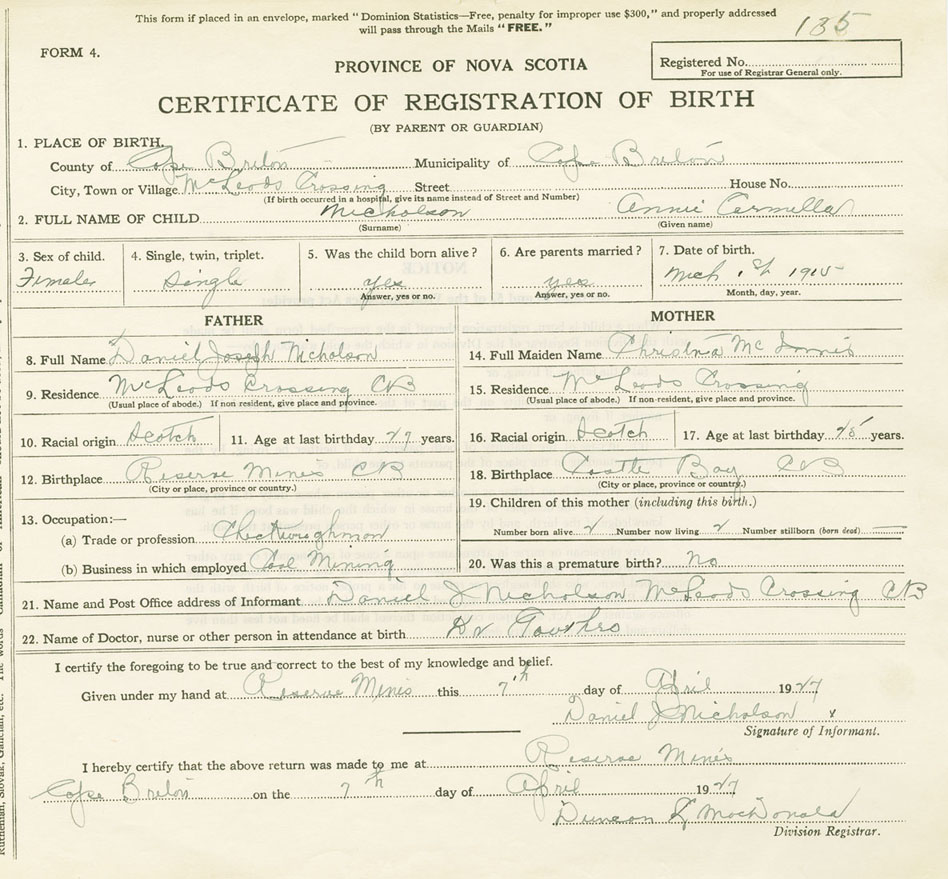 This form if placed in an envelope, marked "Dominion Statistics—Free, penalty for improper use $300," and properly addressed
will pass through the Mails "FREE."
135
FORM 4.
PROVINCE OF NOVA SCOTIA
Registered No.
For use of Registrar General only.
CERTIFICATE OF REGISTRATION OF BIRTH
(BY PARENT OR GUARDIAN)
1. PLACE OF BIRTH.
County of Cape Breton Municipality of Cape Breton
City, Town or Village McLeods Crossing Street House No.
(If birth occurred in a hospital, give its name instead of Street and Number)
2. FULL NAME OF CHILD Nicholson Annie Carmella
(Surname) (Given name)
3. Sex of child. 4. Single, twin, triplet. 5. Was the child born alive? 6. Are parents married? 7. Date of birth.
Female Single yes yes Mch 1st 1915
Answer, yes or no. Answer, yes or no. Month, day, year.
FATHER MOTHER
8. Full Name Daniel Joseph Nicholson 14. Full Maiden Name Christina McInnis
9. Residence McLeods Crossing CB 15. Residence McLeods Crossing
(Usual place of abode.) If non resident, give place and province. (Usual place of abode.) If non-resident, give place and province.
10. Racial origin Scotch 11. Age at last birthday 27 years. 16. Racial origin Scotch 17. Age at last birthday 25 years.
12. Birthplace Reserve Mines CB 18. Birthplace Castle Bay CB
(City or place, province or country.) (City or place, province or country.)
13. Occupation:— 19. Children of this mother (including this birth.)
(a) Trade or profession Checkweighman Number born alive 2 Number now living 2 Number stillborn (born dead)
(b) Business in which employed Coal Mining 20. Was this a premature birth? No
21. Name and Post Office address of Informant Daniel J Nicholson McLeods Crossing CB
22. Name of Doctor, nurse or other person in attendance at birth Dr
I certify the foregoing to be true and correct to the best of my knowledge and belief.
Given under my hand at Reserve Mines this 7th day of April 1927
Daniel J Nicholson x
Signature of Informant.
I hereby certify that the above return was made to me at Reserve Mines
Cape Breton on the 7th day of April 1927
Duncan MacDonald
Division Registrar.